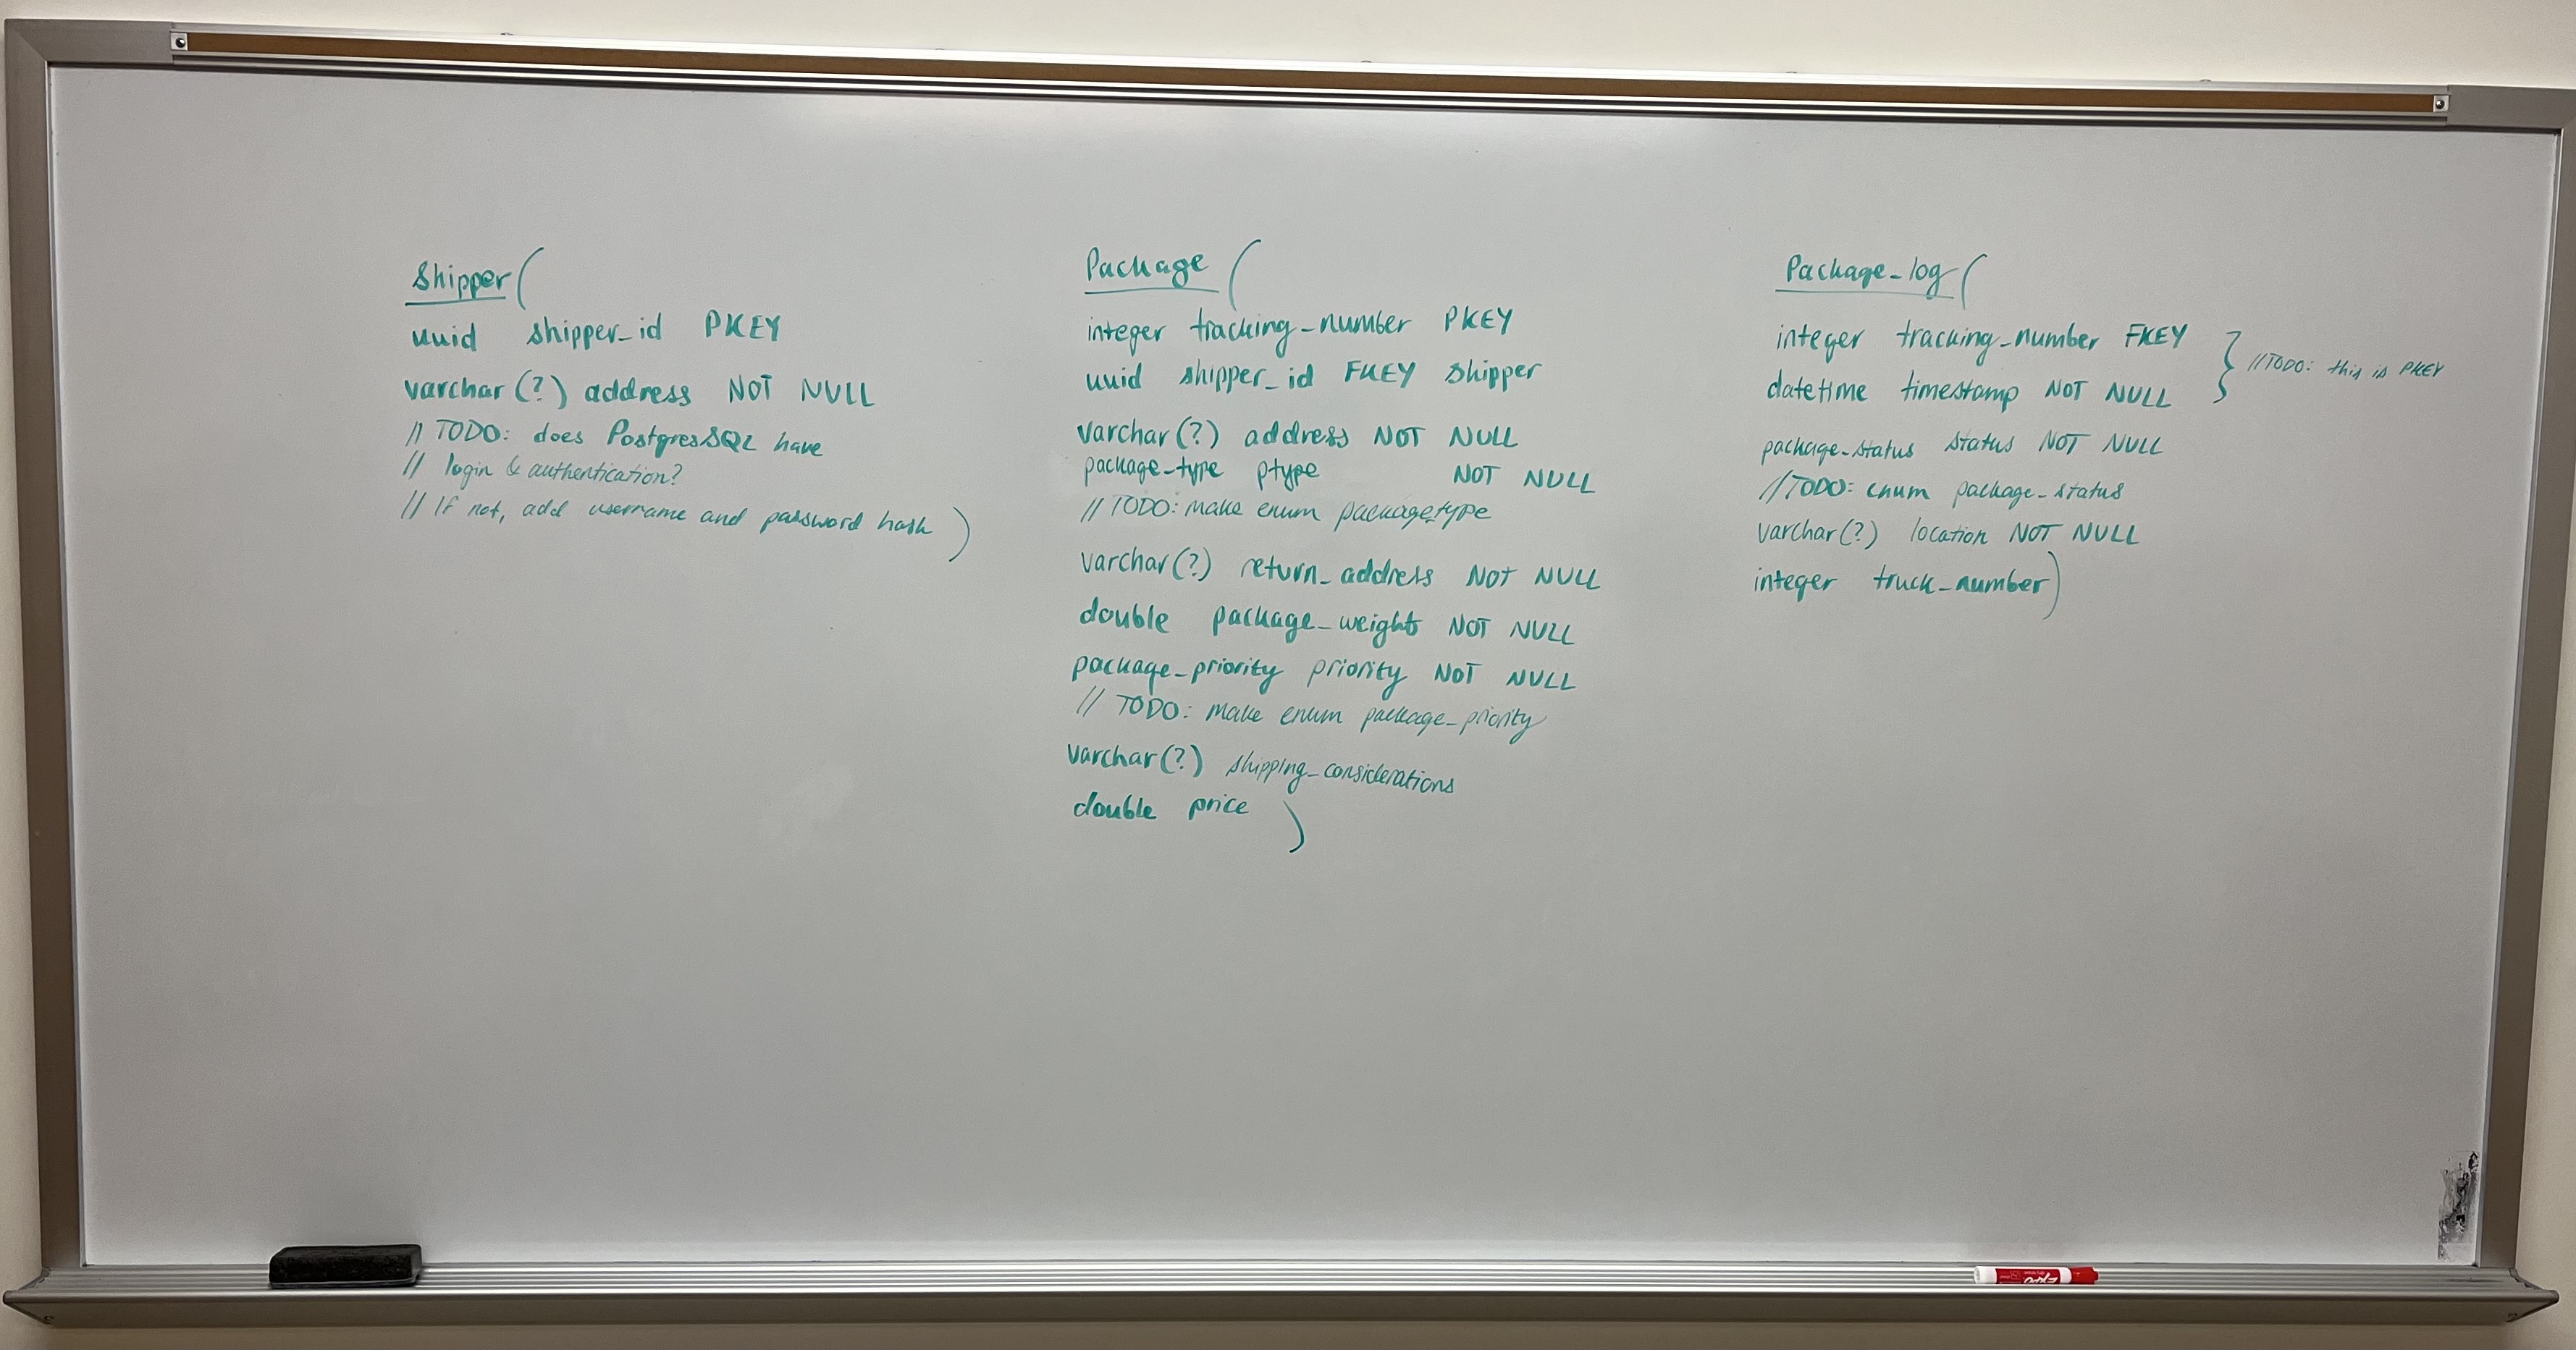 Shipper (
uuid shipper_id PKEY
varchar (?) address NOT NULL
// TODO: does PostgresSQL have
// login & authentication?
// If not, add username and password hash )
Package (
integer tracking_number PKEY
uuid shipper_id FKEY shipper
varchar (?) address NOT NULL
package_type ptype NOT NULL
// TODO: make enum package_type
varchar (?) return_address NOT NULL
double package_weight NOT NULL
package_priority priority NOT NULL
// TODO: make enum package_priority
varchar (?) shipping_considerations
double price )
Package_log (
integer tracking_number FKEY
datetime timestamp NOT NULL
} //TODO: this is PKEY
package_status status NOT NULL
//TODO: enum package_status
varchar (?) location NOT NULL
integer truck_number )
EXPO